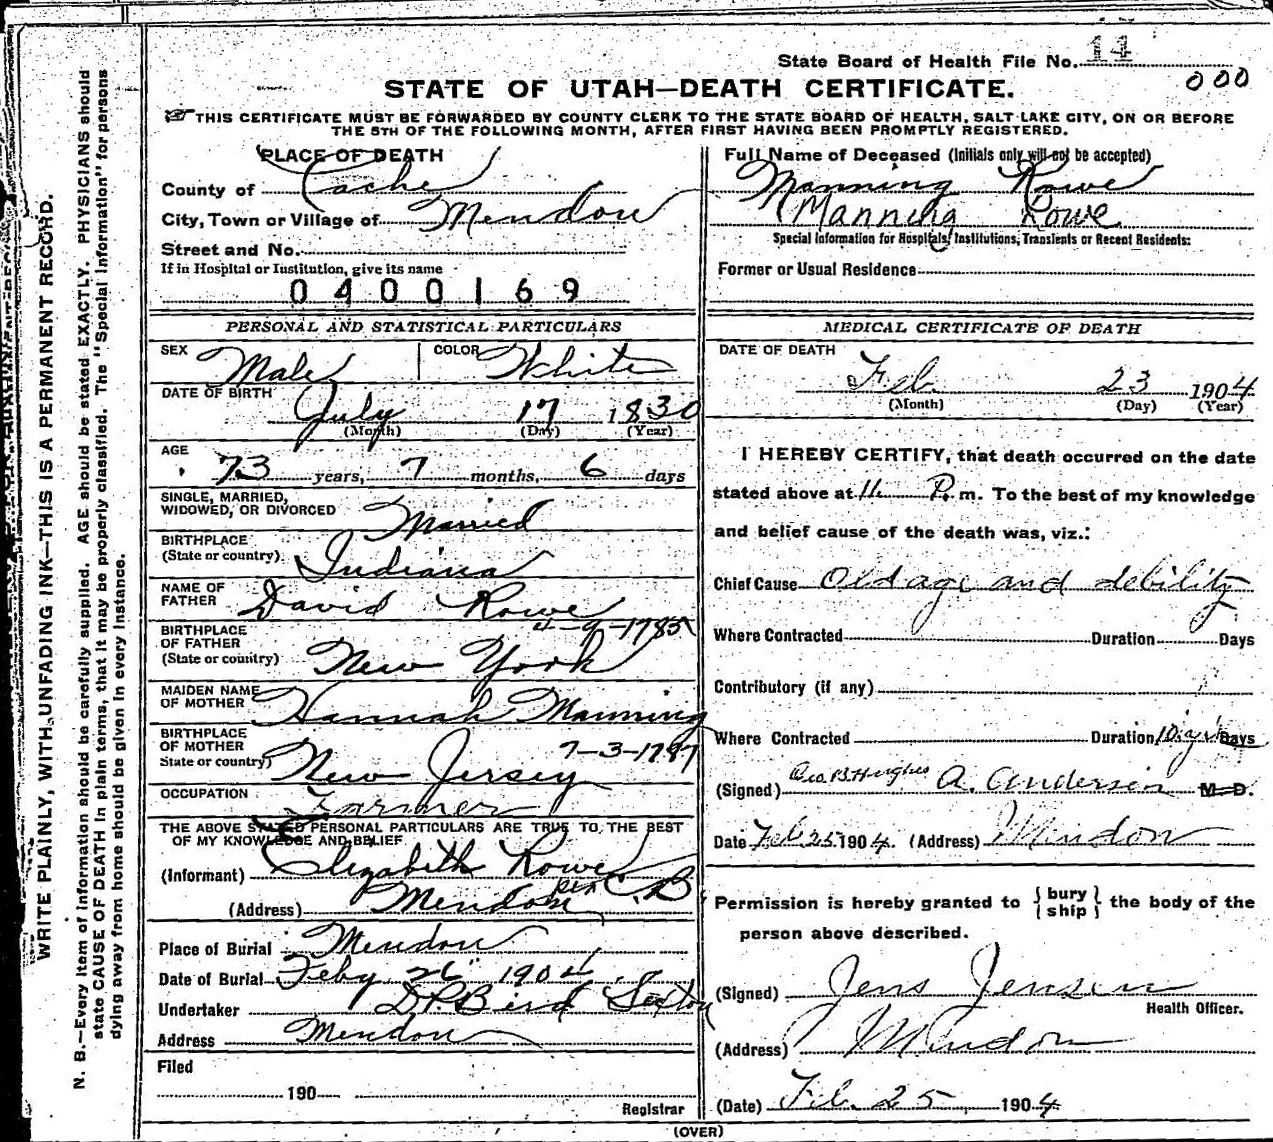 WRITE PLAINLY, WITH UNFADING INK—THIS IS A PERMANENT RECORD.
N. B.—Every item of information should be carefully supplied. AGE should be stated EXACTLY. PHYSICIANS should
state CAUSE OF DEATH in plain terms, that it may be properly classified. The "Special Information" for persons
dying away from home should be given in every instance.
State Board of Health File No. 14
000
STATE OF UTAH—DEATH CERTIFICATE.
THIS CERTIFICATE MUST BE FORWARDED BY COUNTY CLERK TO THE STATE BOARD OF HEALTH, SALT LAKE CITY, ON OR BEFORE
THE 5TH OF THE FOLLOWING MONTH, AFTER FIRST HAVING BEEN PROMPTLY REGISTERED.
PLACE OF DEATH
County of Cache
City, Town or Village of Mendon
Street and No.
If in Hospital or Institution, give its name
0400169
PERSONAL AND STATISTICAL PARTICULARS
SEX Male COLOR White
DATE OF BIRTH
July 17 1830
(Month) (Day) (Year)
AGE
73 years, 7 months, 6 days
SINGLE, MARRIED,
WIDOWED, OR DIVORCED Married
BIRTHPLACE
(State or country) Indiana
NAME OF
FATHER David Rowe
BIRTHPLACE 4-9-1785
OF FATHER
(State or country) New York
MAIDEN NAME
OF MOTHER Hannah Manning
BIRTHPLACE
OF MOTHER 7-3-1787
State or country) New Jersey
OCCUPATION Farmer
THE ABOVE STATED PERSONAL PARTICULARS ARE TRUE TO THE BEST
OF MY KNOWLEDGE AND BELIEF
(Informant) Elizabeth Rowe
(Address) Mendon per C.B.
Place of Burial Mendon
Date of Burial Feby 26" 1904
Undertaker D.P. Bird Sexton
Address Mendon
Filed
190
Registrar
Full Name of Deceased (Initials only will not be accepted)
Manning Rowe
Manning Rowe
Special Information for Hospitals, Institutions, Transients or Recent Residents:
Former or Usual Residence
MEDICAL CERTIFICATE OF DEATH
DATE OF DEATH
Feb 23 1904
(Month) (Day) (Year)
I HEREBY CERTIFY, that death occurred on the date
stated above at 11 P. m. To the best of my knowledge
and belief cause of the death was, viz.:
Chief Cause Old age and debility
Where Contracted Duration Days
Contributory (if any)
Where Contracted Duration Days
(Signed) Geo. B. Hughes A. Andersen M. D.
Date Feb 25 1904. (Address) Mendon
Permission is hereby granted to { bury / ship } the body of the
person above described.
(Signed) Jens Jensen
Health Officer.
(Address) Mendon
(Date) Feb. 25 1904
(OVER)